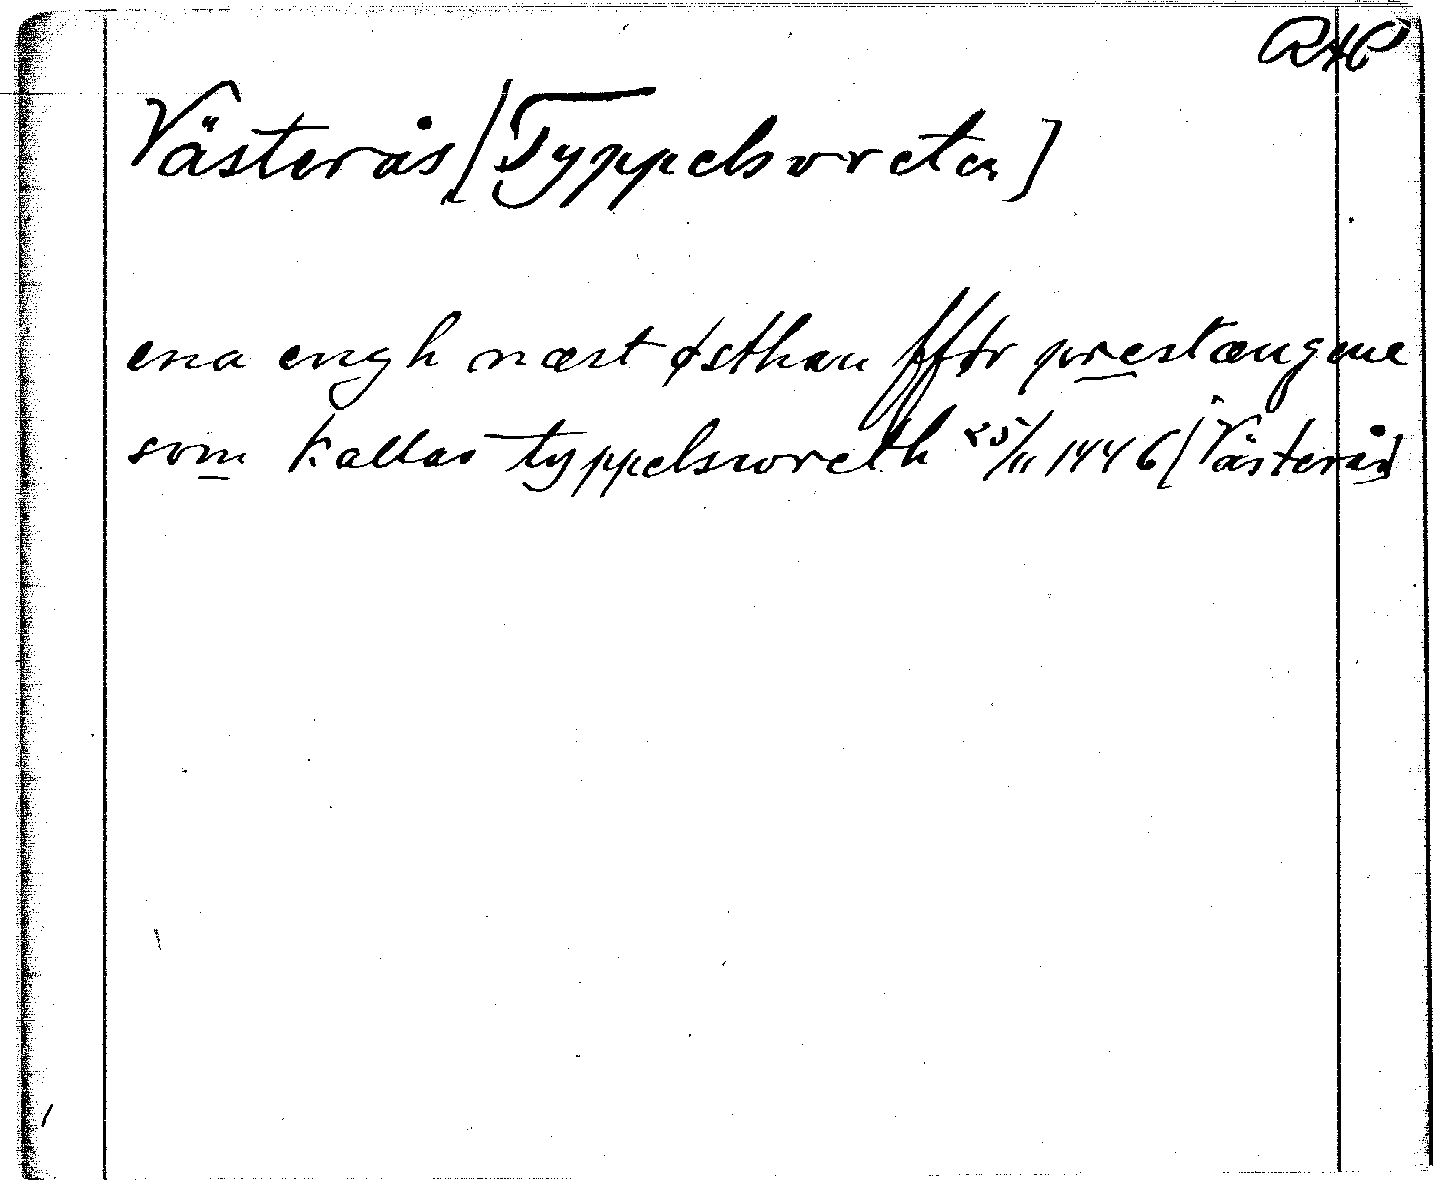 RAP
Västerås [Typpelsvreta]
ena engh næst østhan ffør prestængene
som kallas typpelswreth 25/11 1446 [Västerås]